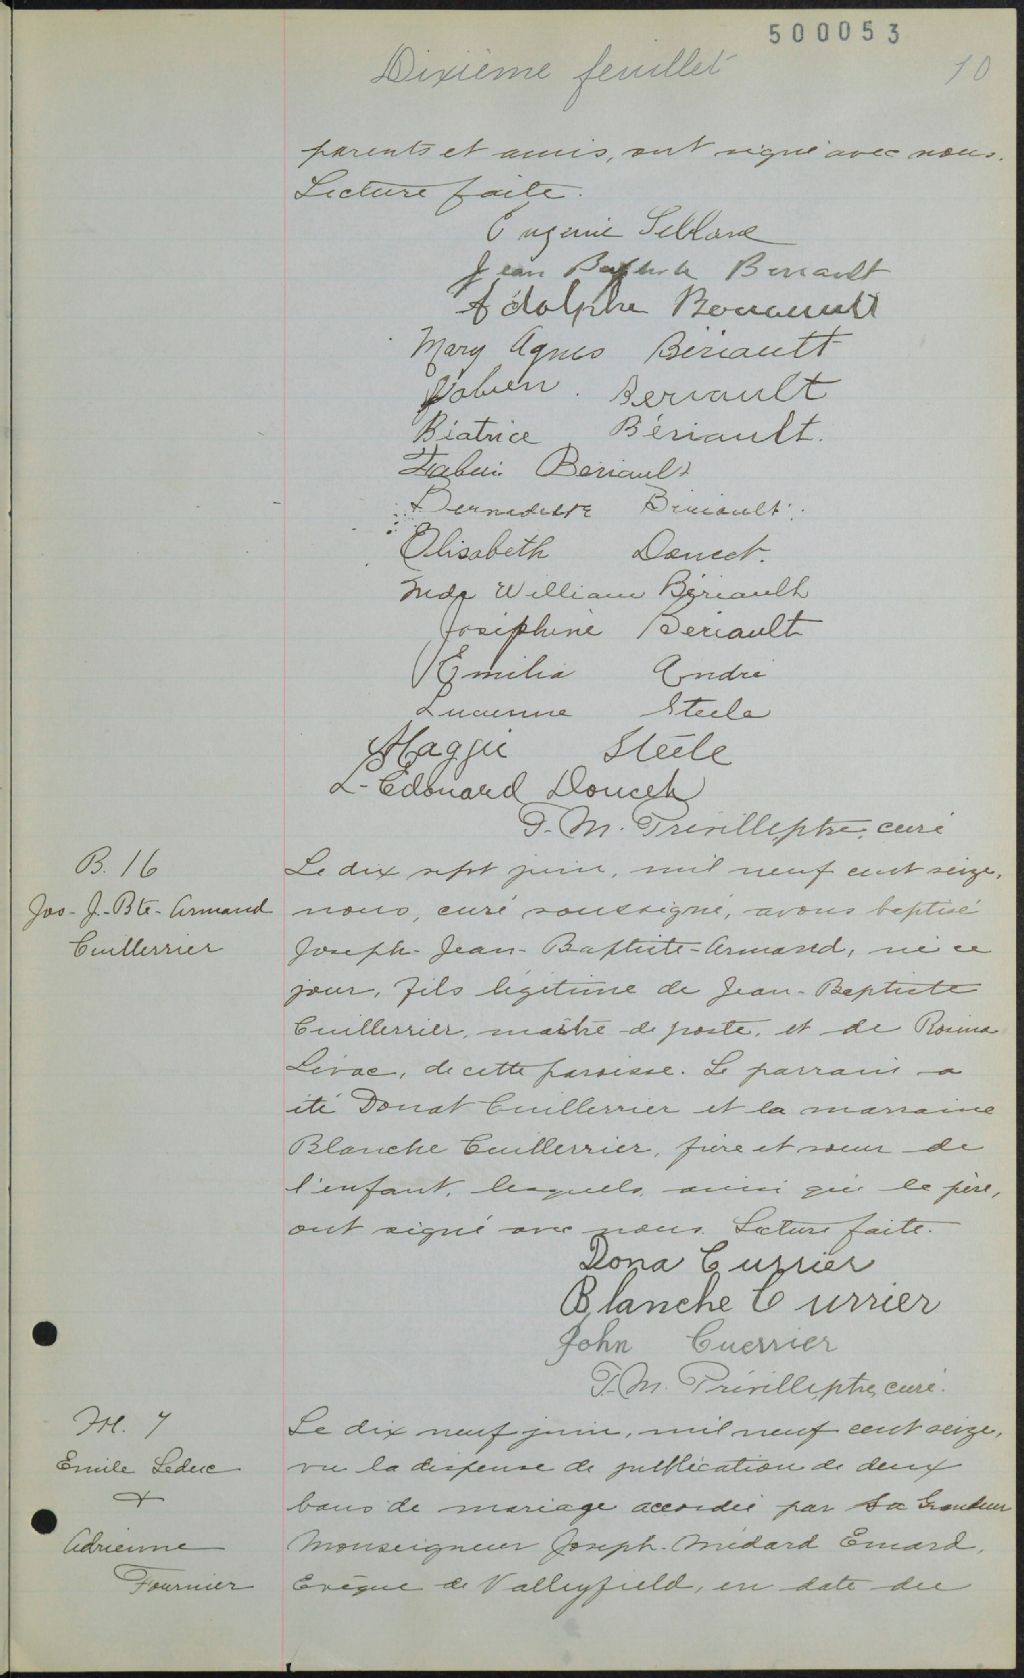 500053
Dixième feuillet 10
parents et amis, ont signé avec nous.
Lecture faite.
Eugenie Leblanc
Jean Baptiste Beriault
Adolphe Beriault
Mary Agnes Bériault
Fabien Beriault
Béatrice Bériault.
Fabien Beriault
Bernadette Bériault
Elisabeth Doucet.
Mde William Bériault
Joséphine Bériault
Emilia André
Lucienne Steele
Maggie Steele
L-Edouard Doucet
F. M. ptre, curé
B. 16
Jos-J-Bte-Armand
Cuillerrier
Le dix sept juin, mil neuf cent seize,
nous, curé soussigné, avons baptisé
Joseph-Jean-Baptiste-Armand, né ce
jour, fils légitime de Jean-Baptiste
Cuillerrier, maître de poste, et de Rosina
Levac, de cette paroisse. Le parrain a
été Donat Cuillerrier et la marraine
Blanche Cuillerrier, frère et soeur de
l'enfant, lesquels, ainsi que le père,
ont signé avec nous. Lecture faite.
Dona Currier
Blanche Currier
John Cuerrier
ptre, curé.
M. 7
Emile Leduc
+
Adrienne
Fournier
Le dix neuf juin, mil neuf cent seize,
vu la dispense de publication de deux
bans de mariage accordée par Sa Grandeur
Monseigneur Joseph-Médard Emard,
Evêque de Valleyfield, en date du